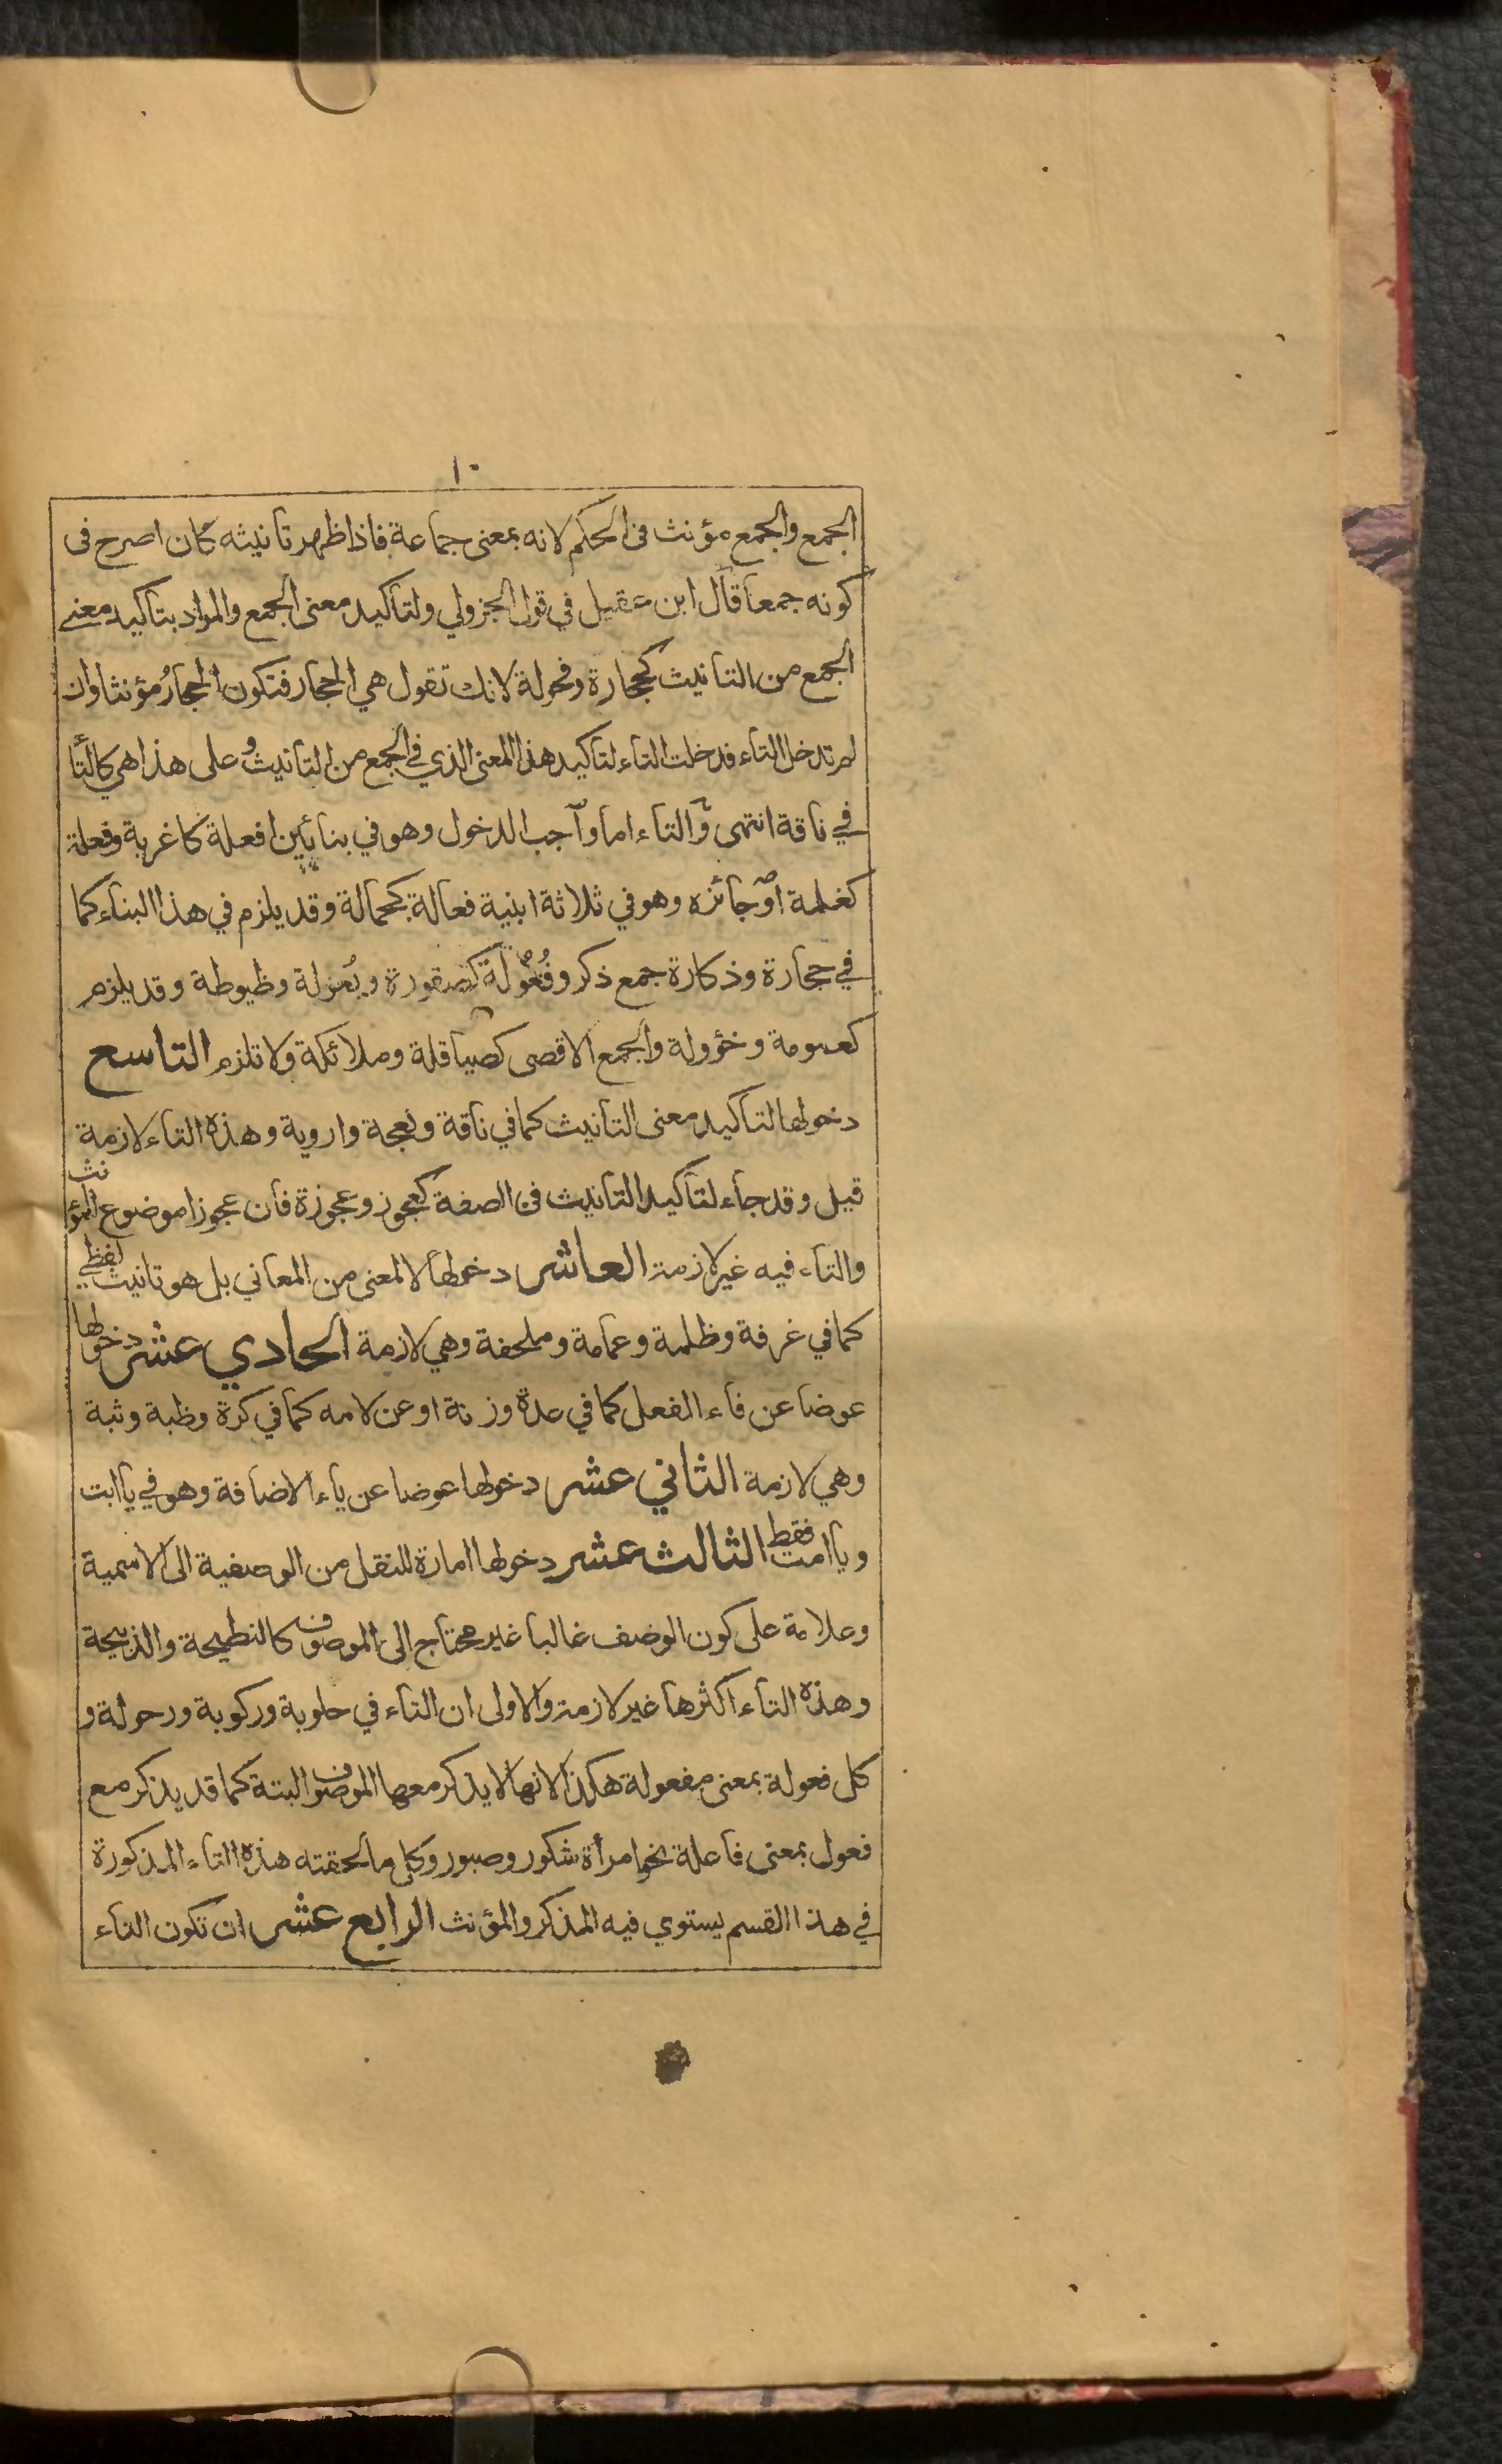 ١٠
الجمع والجمع مؤنث فى الحكم لانه بمعنى جماعة فاذا ظهر تانيثه كان اصرح فى
كونه جمعا قال ابن عقيل في قول الجزولي ولتاكيد معنى الجمع والمراد بتاكيد معنى
الجمع من التانيث كحجارة وفحولة لانك تقول هي الحجار فتكون الحجارُ مؤنثا وان
لم تدخل التاء فدخلت التاء لتاكيد هذا المعنى الذي في الجمع من التانيث وعلى هذا هي كالتا
في ناقة انتهى والتاء اما واجب الدخول وهو في بنائين افعلة كاغربة وفعلة
كغلمة او جائزه وهو في ثلاثة ابنية فعالة كجمالة وقد يلزم في هذا البناء كما
في حجارة وذكارة جمع ذكر وفُعُولة كصقورة وبُعولة وخيوطة وقد يلزم
كعمومة وخؤولة والجمع الاقصى كصياقلة وملائكة ولا تلزم التاسع
دخولها لتاكيد معنى التانيث كما في ناقة ونعجة واروية وهذه التاء لازمة
قيل وقد جاء لتاكيد التانيث فى الصفة كعجوز وعجوزة فان عجوزا موضوع للمؤنث
والتاء فيه غير لازمة العاشر دخولها لا لمعنى من المعاني بل هو تانيث لفظي
كما في غرفة وظلمة وعمامة وملحفة وهي لازمة الحادي عشر دخولها
عوضا عن فاء الفعل كما في عدة وزنة او عن لامه كما في كرة وظبة وثبة
وهي لازمة الثاني عشر دخولها عوضا عن ياء الاضافة وهو في يا ابت
ويا امت فقط الثالث عشر دخولها امارة للنقل من الوصفية الى الاسمية
وعلامة على كون الوصف غالبا غير محتاج الى الموصوف كالنطيحة والذبيحة
وهذه التاء اكثرها غير لازمة والاولى ان التاء في حلوبة وركوبة ورحولة و
كل فعولة بمعنى مفعولة هكذا لانها لا يذكر معها الموصوف البتة كما قد يذكر مع
فعول بمعنى فاعلة نحو امرأة شكور وصبور وكل ما لحقته هذه التاء المذكورة
في هذا القسم يستوي فيه المذكر والمؤنث الرابع عشر ان تكون التاء